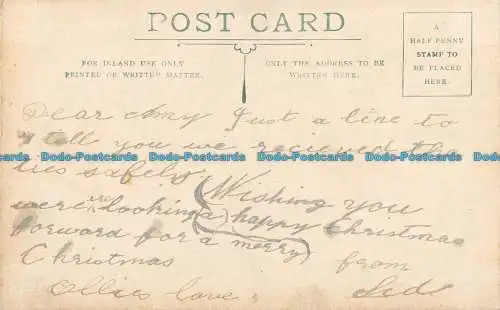 POST CARD
FOR INLAND USE ONLY
PRINTED OR WRITTEN MATTER.
ONLY THE ADDRESS TO BE
WRITTEN HERE.
A
HALF PENNY
STAMP TO
BE PLACED
HERE.
Dear Amy Just a line to
tell you we recieved the
ties safely
Wishing you
were are looking a happy Christmas
forward for a merry
Christmas from
Ollies love. Sid
Dodo-Postcards Dodo-Postcards Dodo-Postcards Dodo-Postcards
Dodo-Postcards Dodo-Postcards Dodo-Postcards Dodo-Postcards